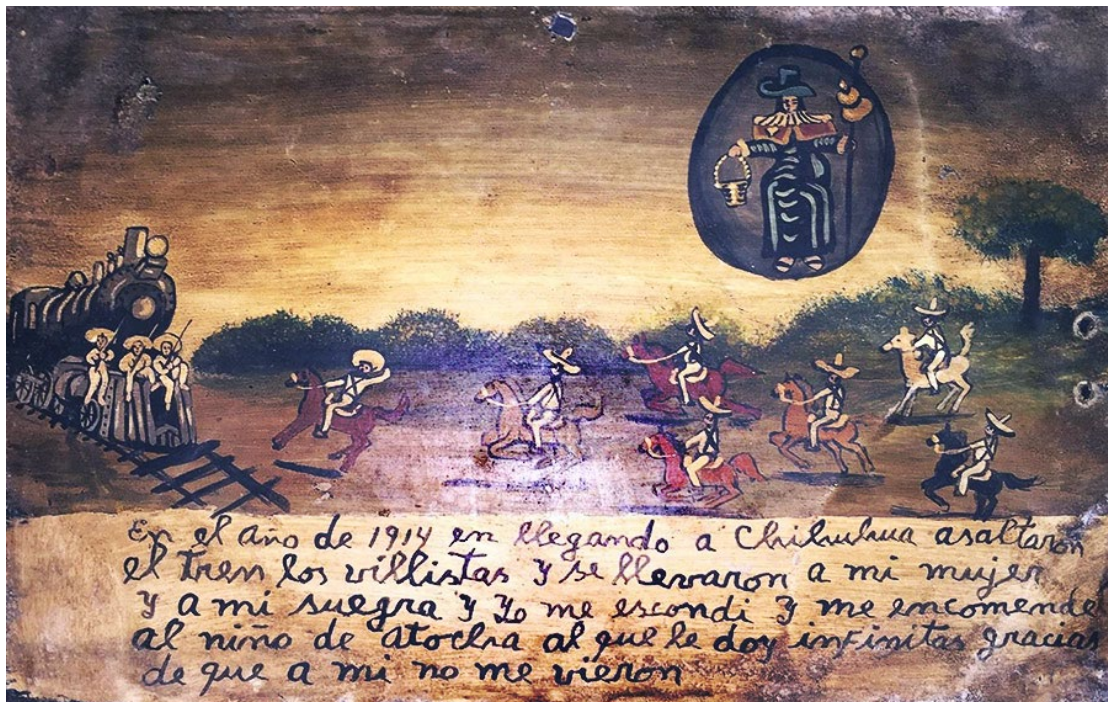 En el año de 1914 en llegando a Chihuhua asaltaron
el tren los villistas y se llevaron a mi mujer
y a mi suegra y yo me escondi y me encomende
al niño de atocha al que le doy infinitas gracias
de que a mi no me vieron